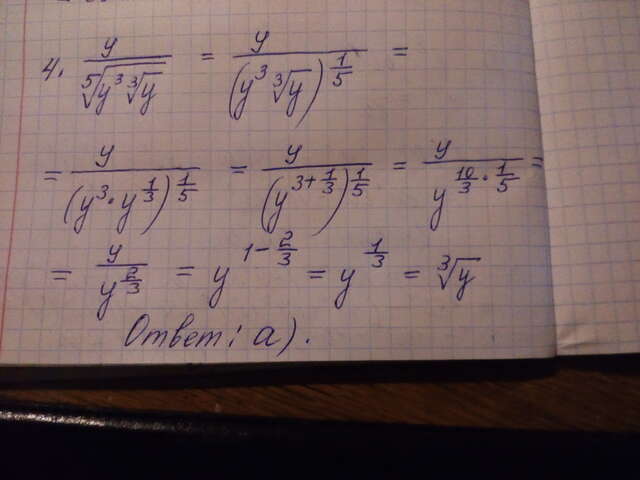 4. y/⁵√(y³ ³√y) = y/(y³ ³√y)^(1/5) =
= y/(y³·y^(1/3))^(1/5) = y/(y^(3+1/3))^(1/5) = y/y^(10/3·1/5) =
= y/y^(2/3) = y^(1-2/3) = y^(1/3) = ³√y
Ответ: а).